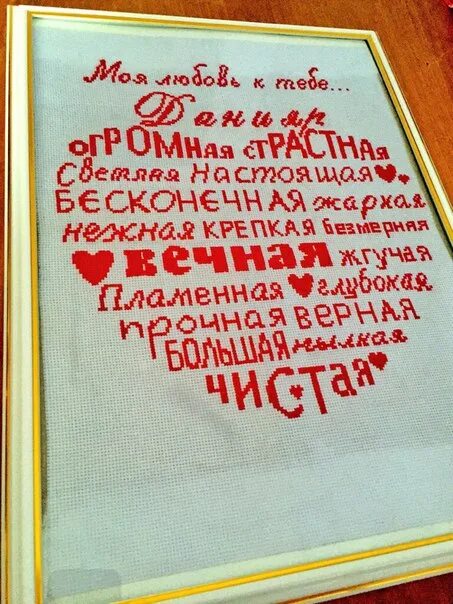 Моя любовь к тебе...
Данияр
огРОМная сТРАСТНАЯ
Светлая Настоящая
БЕСКОНЕЧНАЯ жаркая
нежная КРЕПКАЯ безмерная
вечная жгучая
Пламенная глубокая
прочная ВЕРНАЯ
БОЛЬШАЯ пылкая
чиСтая